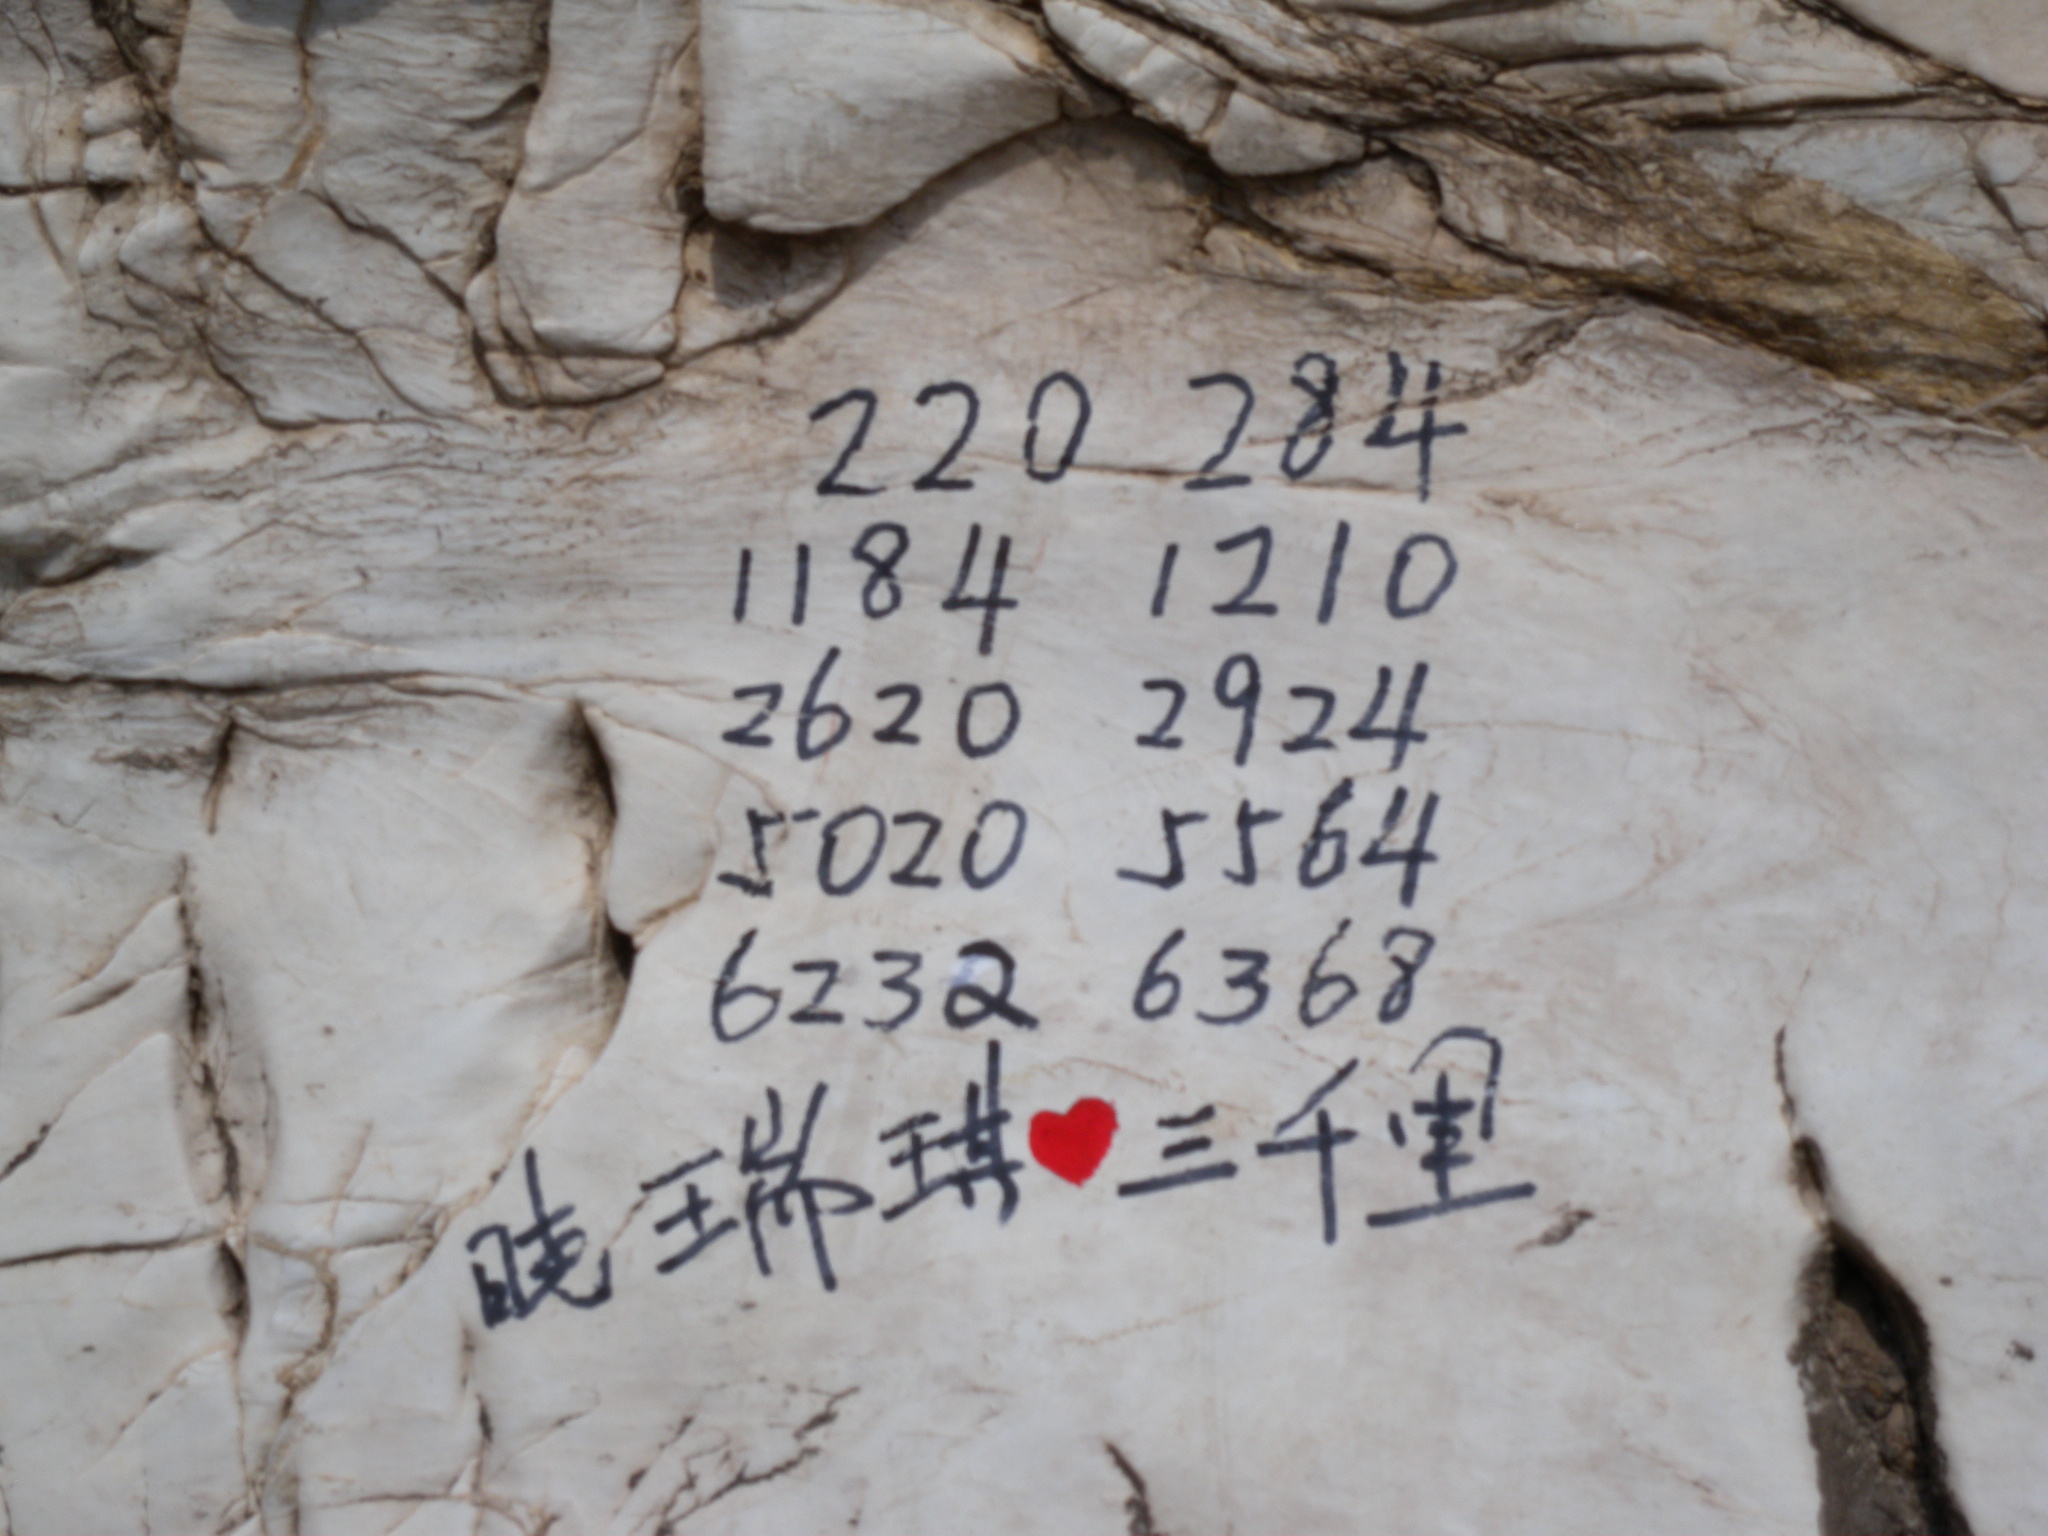 220 284
1184 1210
2620 2924
5020 5564
6232 6368
晓瑞琪❤三千里